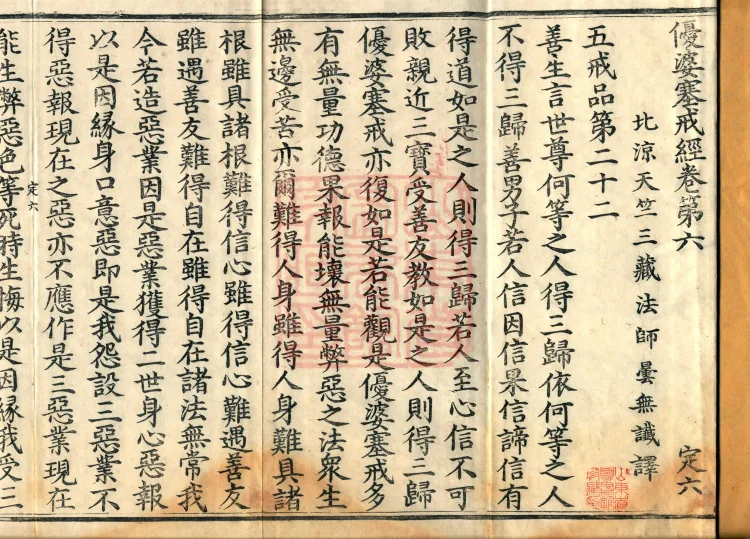 優婆塞戒經卷第六
定六
北涼天竺三藏法師曇無讖譯
五戒品第二十二
善生言世尊何等之人得三歸依何等之人
不得三歸善男子若人信因信果信諦信有
得道如是之人則得三歸若人至心信不可
敗親近三寶受善友教如是之人則得三歸
優婆塞戒亦復如是若能觀是優婆塞戒多
有無量功德果報能壞無量弊惡之法衆生
無邊受苦亦爾難得人身雖得人身難具諸
根雖具諸根難得信心雖得信心難遇善友
雖遇善友難得自在雖得自在諸法無常我
今若造惡業因是惡業獲得二世身心惡報
以是因緣身口意惡即是我怨設三惡業不
得惡報現在之惡亦不應作是三惡業現在
定六
能生弊惡色等死時生悔以是因緣我受三